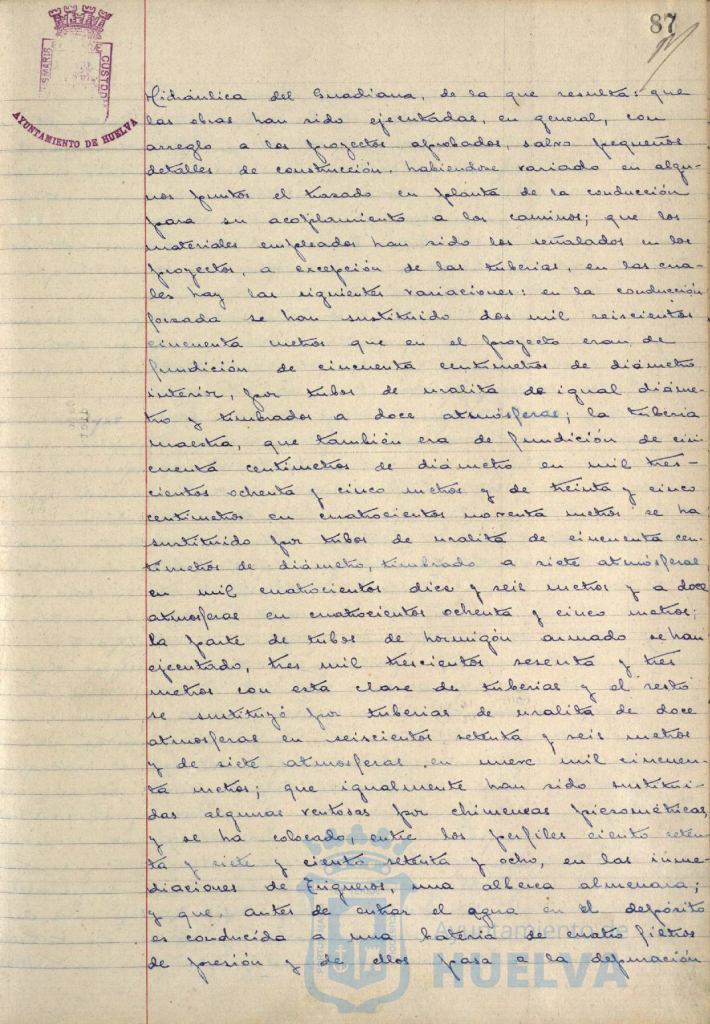 87
SMARIS
CUSTODI
AYUNTAMIENTO DE HUELVA
Hidráulica del Guadiana, de la que resulta: que
las obras han sido ejecutadas, en general, con
arreglo a los proyectos aprobados, salvo pequeños
detalles de construcción, habiendose variado en algu-
nos puntos el trazado en planta de la conducción
para su acoplamiento a los caminos; que los
materiales empleados han sido los señalados en los
proyectos, a excepción de las tuberias, en las cua-
les hay las siguientes variaciones: en la conducción
forzada se han sustituido dos mil seiscientos
cincuenta metros que en el proyecto eran de
fundición de cincuenta centimetros de diámetro
interior, por tubos de uralita de igual diáme-
tro y timbrados a doce atmósferas; la tuberia
maestra, que también era de fundición de cin
cuenta centimetros de diámetro en mil tres-
cientos ochenta y cinco metros y de treinta y cinco
centimetros en cuatrocientos noventa metros se ha
sustituido por tubos de uralita de cincuenta cen-
timetros de diámetro, timbrado a siete atmósferas
en mil cuatrocientos diez y seis metros y a doce
atmosferas en cuatrocientos ochenta y cinco metros;
la parte de tubos de hormigón armado se han
ejecutado, tres mil trescientos sesenta y tres
metros con esta clase de tuberias y el resto
se sustituyó por tuberias de uralita de doce
atmosferas en seiscientos setenta y seis metros
y de siete atmosferas, en nueve mil cincuen-
ta metros; que igualmente han sido sustitui-
das algunas ventosas por chimeneas piezométricas,
y se ha colocado, entre los perfiles ciento seten-
ta y siete y ciento setenta y ocho, en las inme-
diaciones de Trigueros, una alberca almenara;
y que, antes de entrar el agua en el depósito
es conducida a una bateria de cuatro filtros
de presión y de ellos pasa a la depuración
Ayuntamiento de
HUELVA